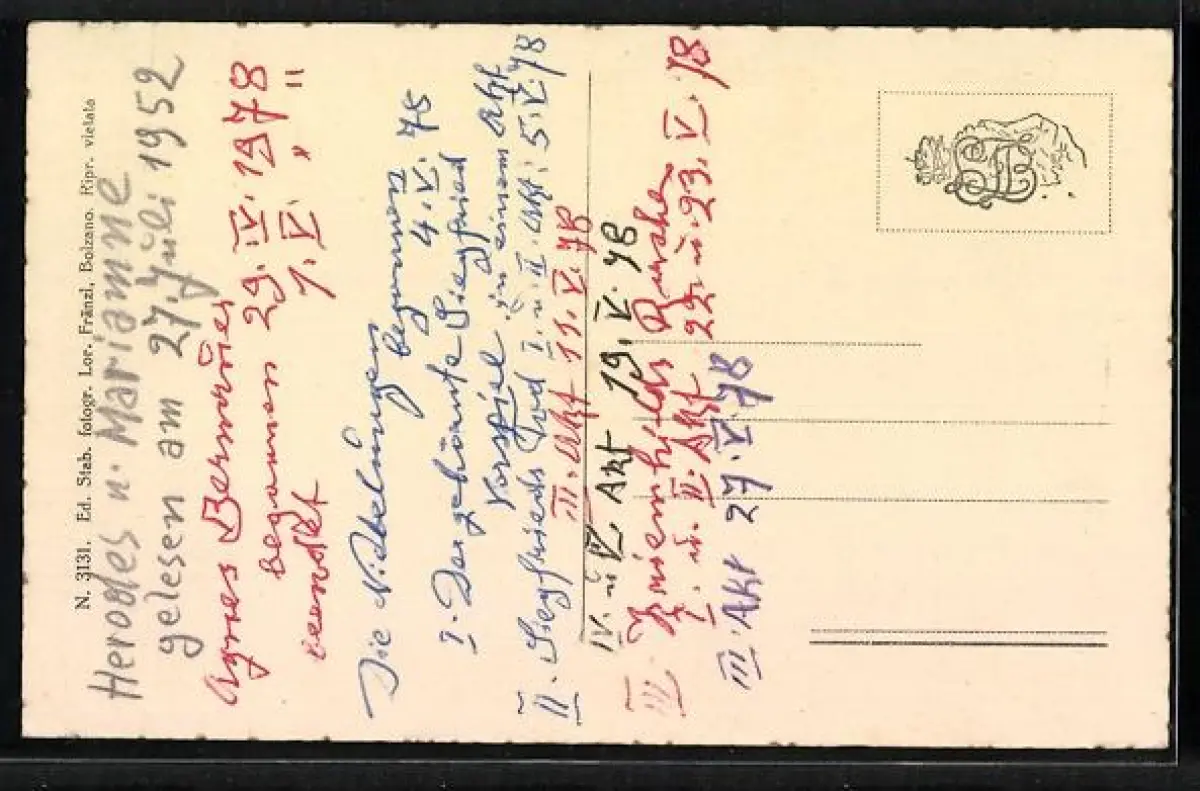 N. 3131. Ed. Stab. fotogr. Lor. Fränzl, Bolzano. Ripr. vietata
Herodes u. Mariamne
gelesen am 27. Juli 1952
Agnes Bernauer
begonnen 29. IV. 1978
beendet 1. V. " "
Die Niebelungen
begonnen 4. V. 78
I. Der gehörnte Siegfried
Vorspiel in einem Akt
II. Siegfrieds Tod I. u. II. Akt: 5. V. 78
III. Akt 11. V. 78
IV. u V. Akt 19. V. 78
III. Kriemhilds Rache
I. u. II. Akt 22. u. 23. V. 78
III. Akt 27. V. 78